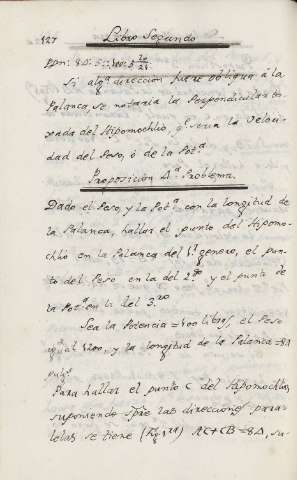 127 Libro Segundo
Si algª direccion fuere obliqua á la
Palanca, se notaria la Perpendicular ti-
rada del Hipomochlio, qᵉ sería la Veloci-
dad del Peso, ó de la Potª
Proposición 4.ª Problema.
Dado el Peso, y la Potª con la longitud de
la Palanca, hallar el punto del Hipomo-
chlio en la Palanca del 1º genero, el pun-
to del Peso en la del 2º y el punto de
la Potª en la del 3.º
Sea la Potencia = 100 libras, el Peso
igual 1200, y la longitud de la Palanca = 84
pulgˢ
Para hallar el punto C del Hipomochlio,
suponiendo spre las direcciones para-
lelas se tiene AC+CB = 84, su-